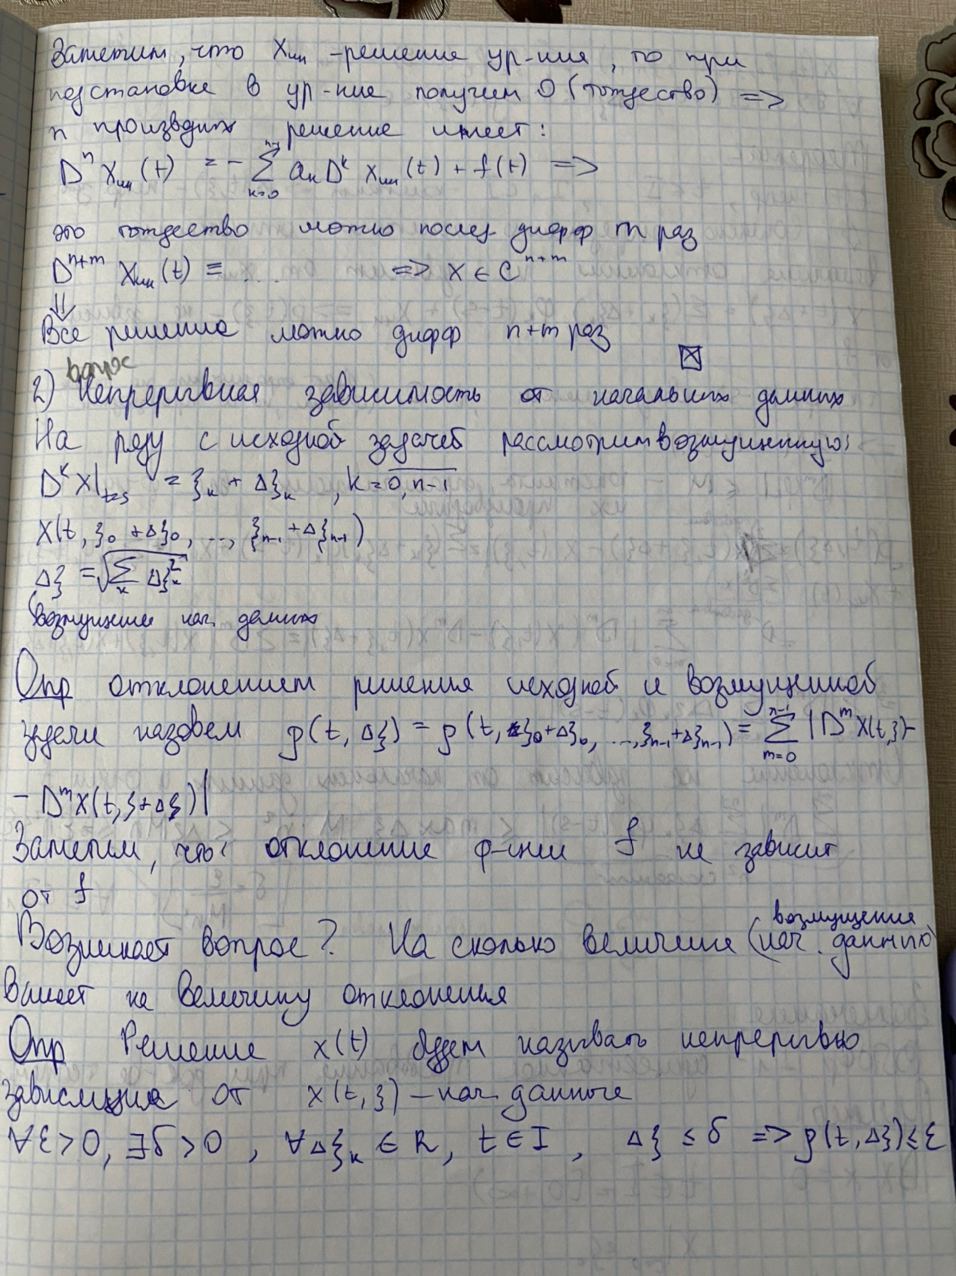 Заметим, что Xчн - решение ур-ния, то при
подстановке в ур-ние получим 0 (тождество) =>
n производных решение имеет:
Dⁿ Xчн (t) = - ∑ₖ₌₀ⁿ⁻¹ aₖ Dᵏ Xчн (t) + f(t) =>
это тождество можно послед дифф m раз
Dⁿ⁺ᵐ Xчн (t) ≡ .... => X ∈ Cⁿ⁺ᵐ
⇓
Все решение можно дифф n+m раз
вопрос
2) Непрерывная зависимость от начальных данных
На ряду с исходной задачей рассмотрим возмущенную:
DᵏX|t=s = ξₖ + Δξₖ , k = 0, n-1
X(t, ξ₀ + Δξ₀, .., ξₙ₋₁ + Δξₙ₋₁)
Δξ = √(∑ₖ Δξₖ²)
возмущение нач. данных
Опр отклонением решения исходной и возмущенной
задачи назовем ρ(t, Δξ) = ρ(t, ξ₀+Δξ₀, ..., ξₙ₋₁+Δξₙ₋₁) = ∑ₘ₌₀ⁿ⁻¹ |DᵐX(t,ξ)-
- DᵐX(t, ξ+Δξ)|
Заметим, что: отклонение ф-ции f не зависит
от f
Возникает вопрос? На сколько величина (возмущения нач. данных)
влияет на величину отклонения
Опр Решение x(t) будем называть непрерывно
зависящие от x(t, ξ) - нач. данные
∀ε>0, ∃δ>0 , ∀Δξₖ ∈ R, t∈I , Δξ ≤ δ => ρ(t, Δξ) ≤ ε